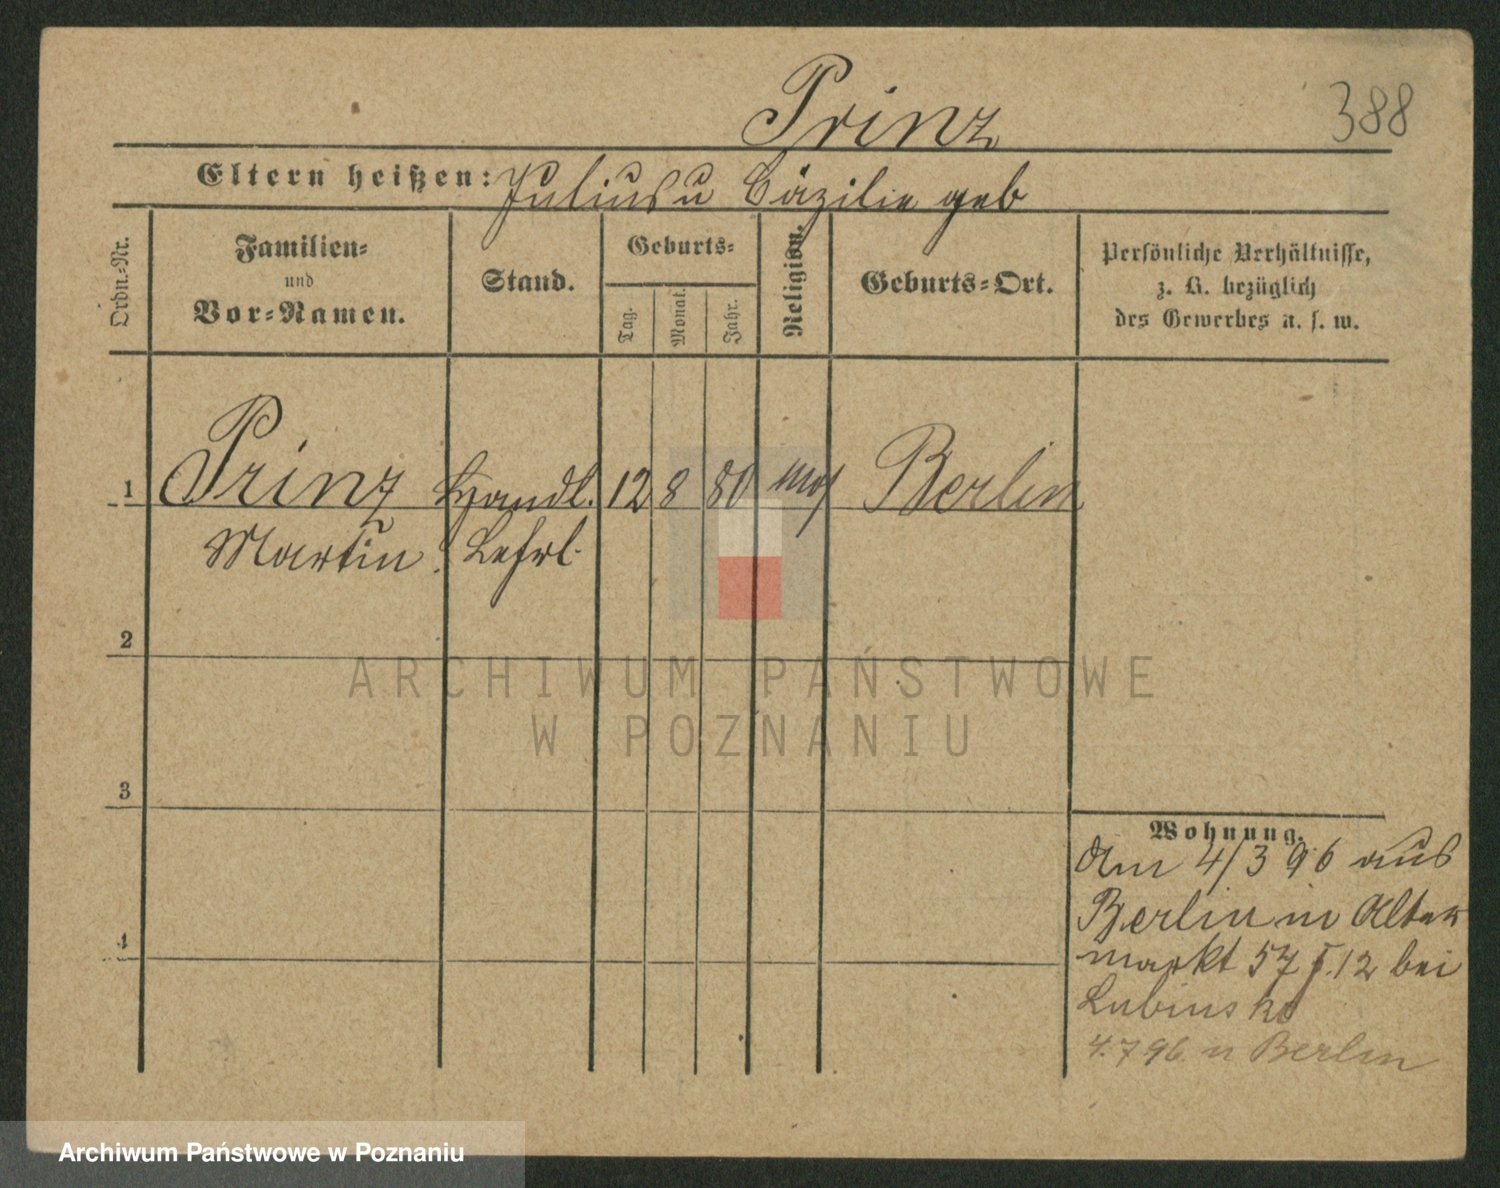 Prinz
388
Eltern heißen: Julius u Cäzilie geb
Ordn.-Nr.
Familien-
und
Vor-Namen.
Stand.
Geburts-
Tag.
Monat.
Jahr.
Religion.
Geburts-Ort.
Persönliche Verhältnisse,
z. B. bezüglich
des Gewerbes u. s. w.
1 Prinz Handl. 12 8 80 mos Berlin
Martin Lehrl.
2
3
4
Wohnung.
Am 4/3 96 aus
Berlin in Alter
markt 57 I. 12 bei
Lubinski
4.7 96 n Berlin
ARCHIWUM PAŃSTWOWE
W POZNANIU
Archiwum Państwowe w Poznaniu